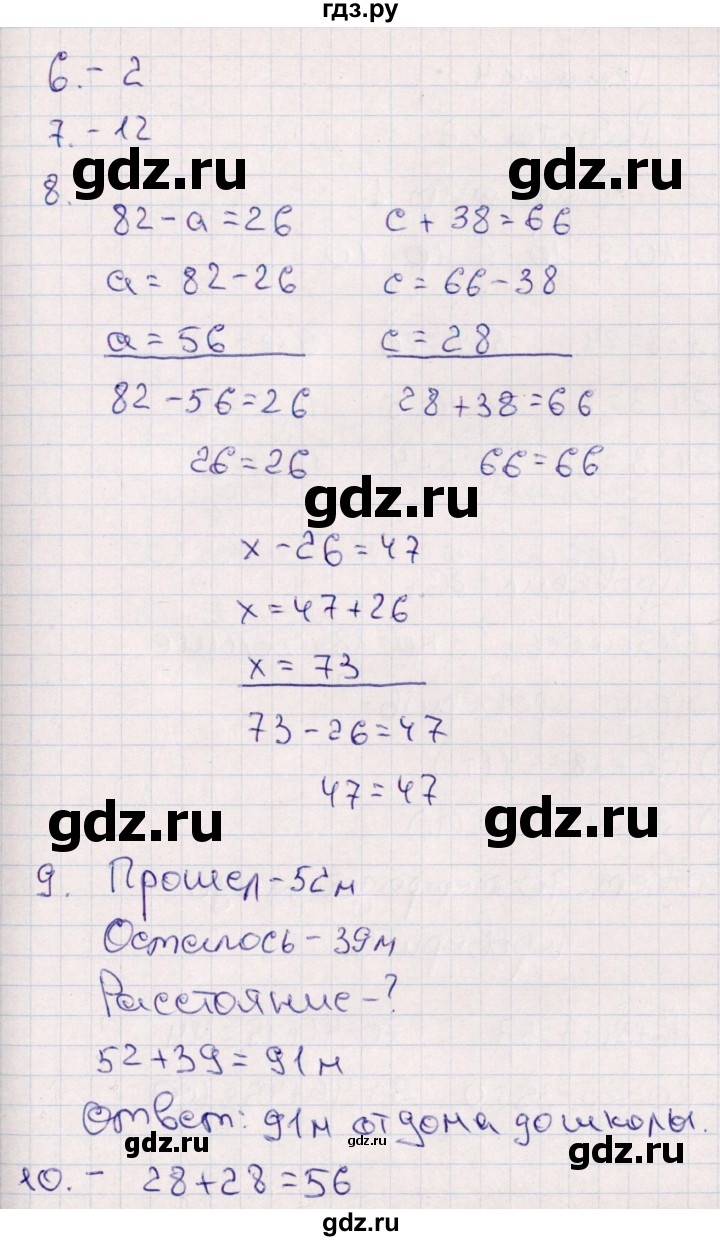 гдз.ру
6. - 2
7. - 12
gdz.ru
gdz.ru
8.
82 - a = 26
a = 82 - 26
a = 56
82 - 56 = 26
26 = 26
c + 38 = 66
c = 66 - 38
c = 28
28 + 38 = 66
66 = 66
gdz.ru
x - 26 = 47
x = 47 + 26
x = 73
73 - 26 = 47
47 = 47
gdz.ru
gdz.ru
9. Прошел - 52 м
Осталось - 39 м
Расстояние - ?
52 + 39 = 91 м
Ответ: 91 м от дома до школы.
gdz.ru
gdz.ru
gdz.ru
10. - 28 + 28 = 56
gdz.ru